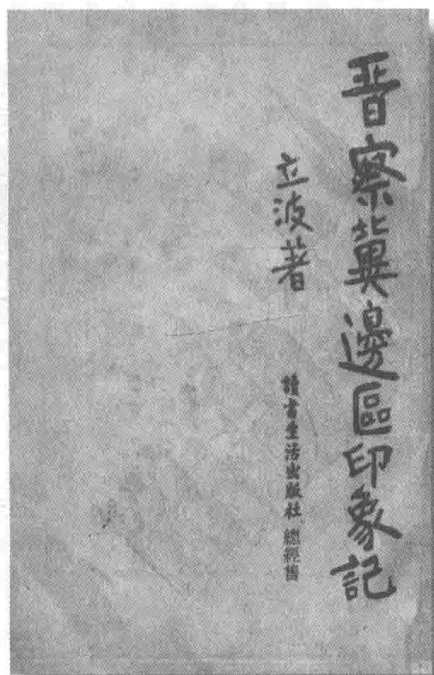 晋察冀邊區印象記
立波著
讀書生活出版社 總經售